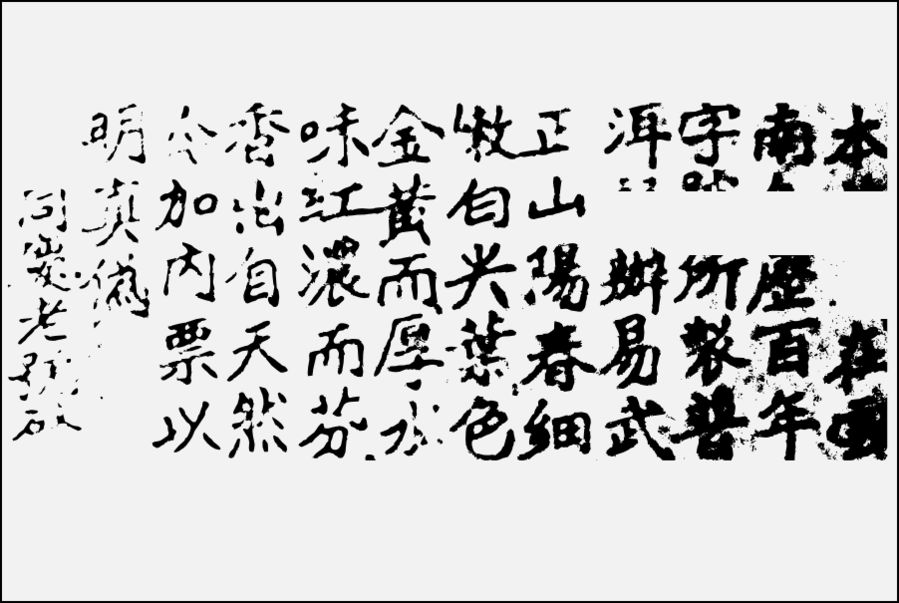 本在雲
南歷百年
字所製普
洱辦易武
正山陽春細
嫩白尖葉色
金黃而厚水
味紅濃而芬
香出自天然
今加內票以
明真偽
同慶老號啟